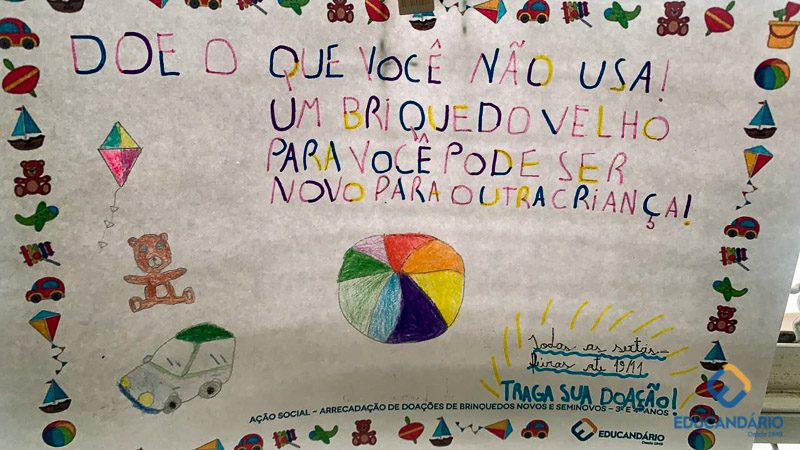 DOE O QUE VOCÊ NÃO USA!
UM BRIQUEDO VELHO
PARA VOCÊ PODE SER
NOVO PARA OUTRA CRIANÇA!
Todas as sextas-
feiras até 19/11
TRAGA SUA DOAÇÃO!
AÇÃO SOCIAL - ARRECADAÇÃO DE DOAÇÕES DE BRINQUEDOS NOVOS E SEMINOVOS - 3º E 4º ANOS
EDUCANDÁRIO
Desde 1949
EDUCANDÁRIO
Desde 1949
EDUCANDÁRIO